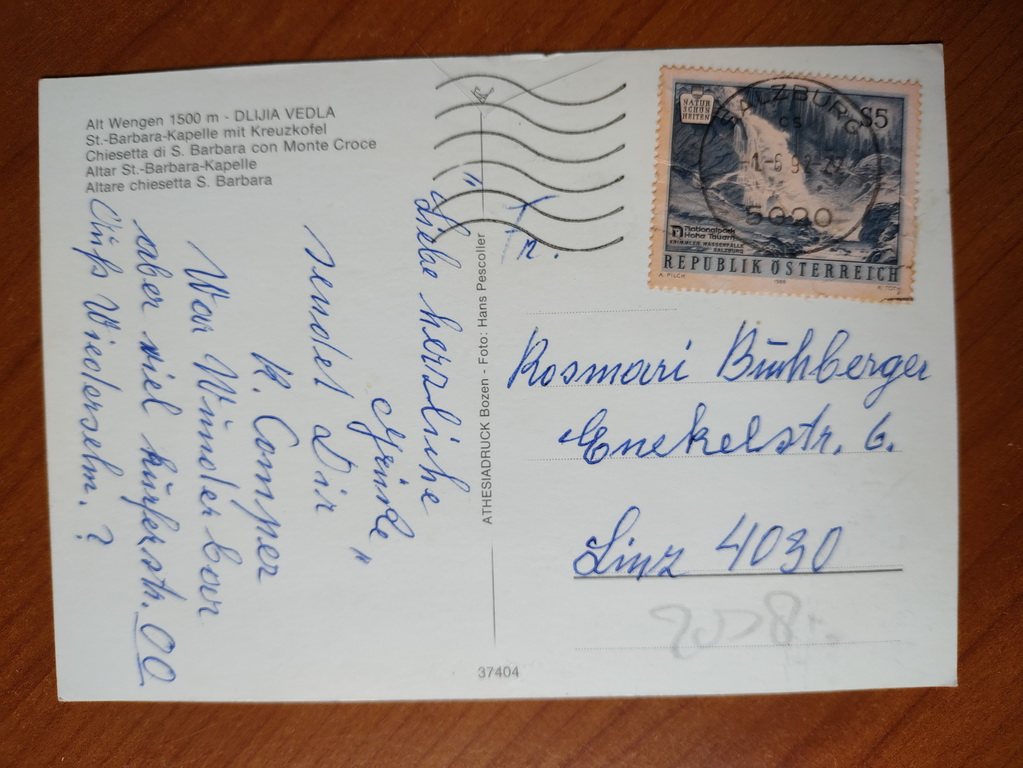 Alt Wengen 1500 m - DLIJIA VEDLA
St.-Barbara-Kapelle mit Kreuzkofel
Chiesetta di S. Barbara con Monte Croce
Altar St.-Barbara-Kapelle
Altare chiesetta S. Barbara
"Liebe herzliche
Grüße"
sendet Dir
K. Comper
War Wunderbar
aber viel
Wiedersehn.?
ATHESIADRUCK Bozen - Foto: Hans Pescoller
37404
NATUR
SCHÖN
HEITEN
S5
SALZBURG
CS
5020
Nationalpark
Hohe Tauern
KRIMMLER WASSERFÄLLE
SALZBURG
REPUBLIK ÖSTERREICH
A. PILCH
1988
Fr.
Rosmari Buchberger
Enekelstr. 6.
Linz 4030